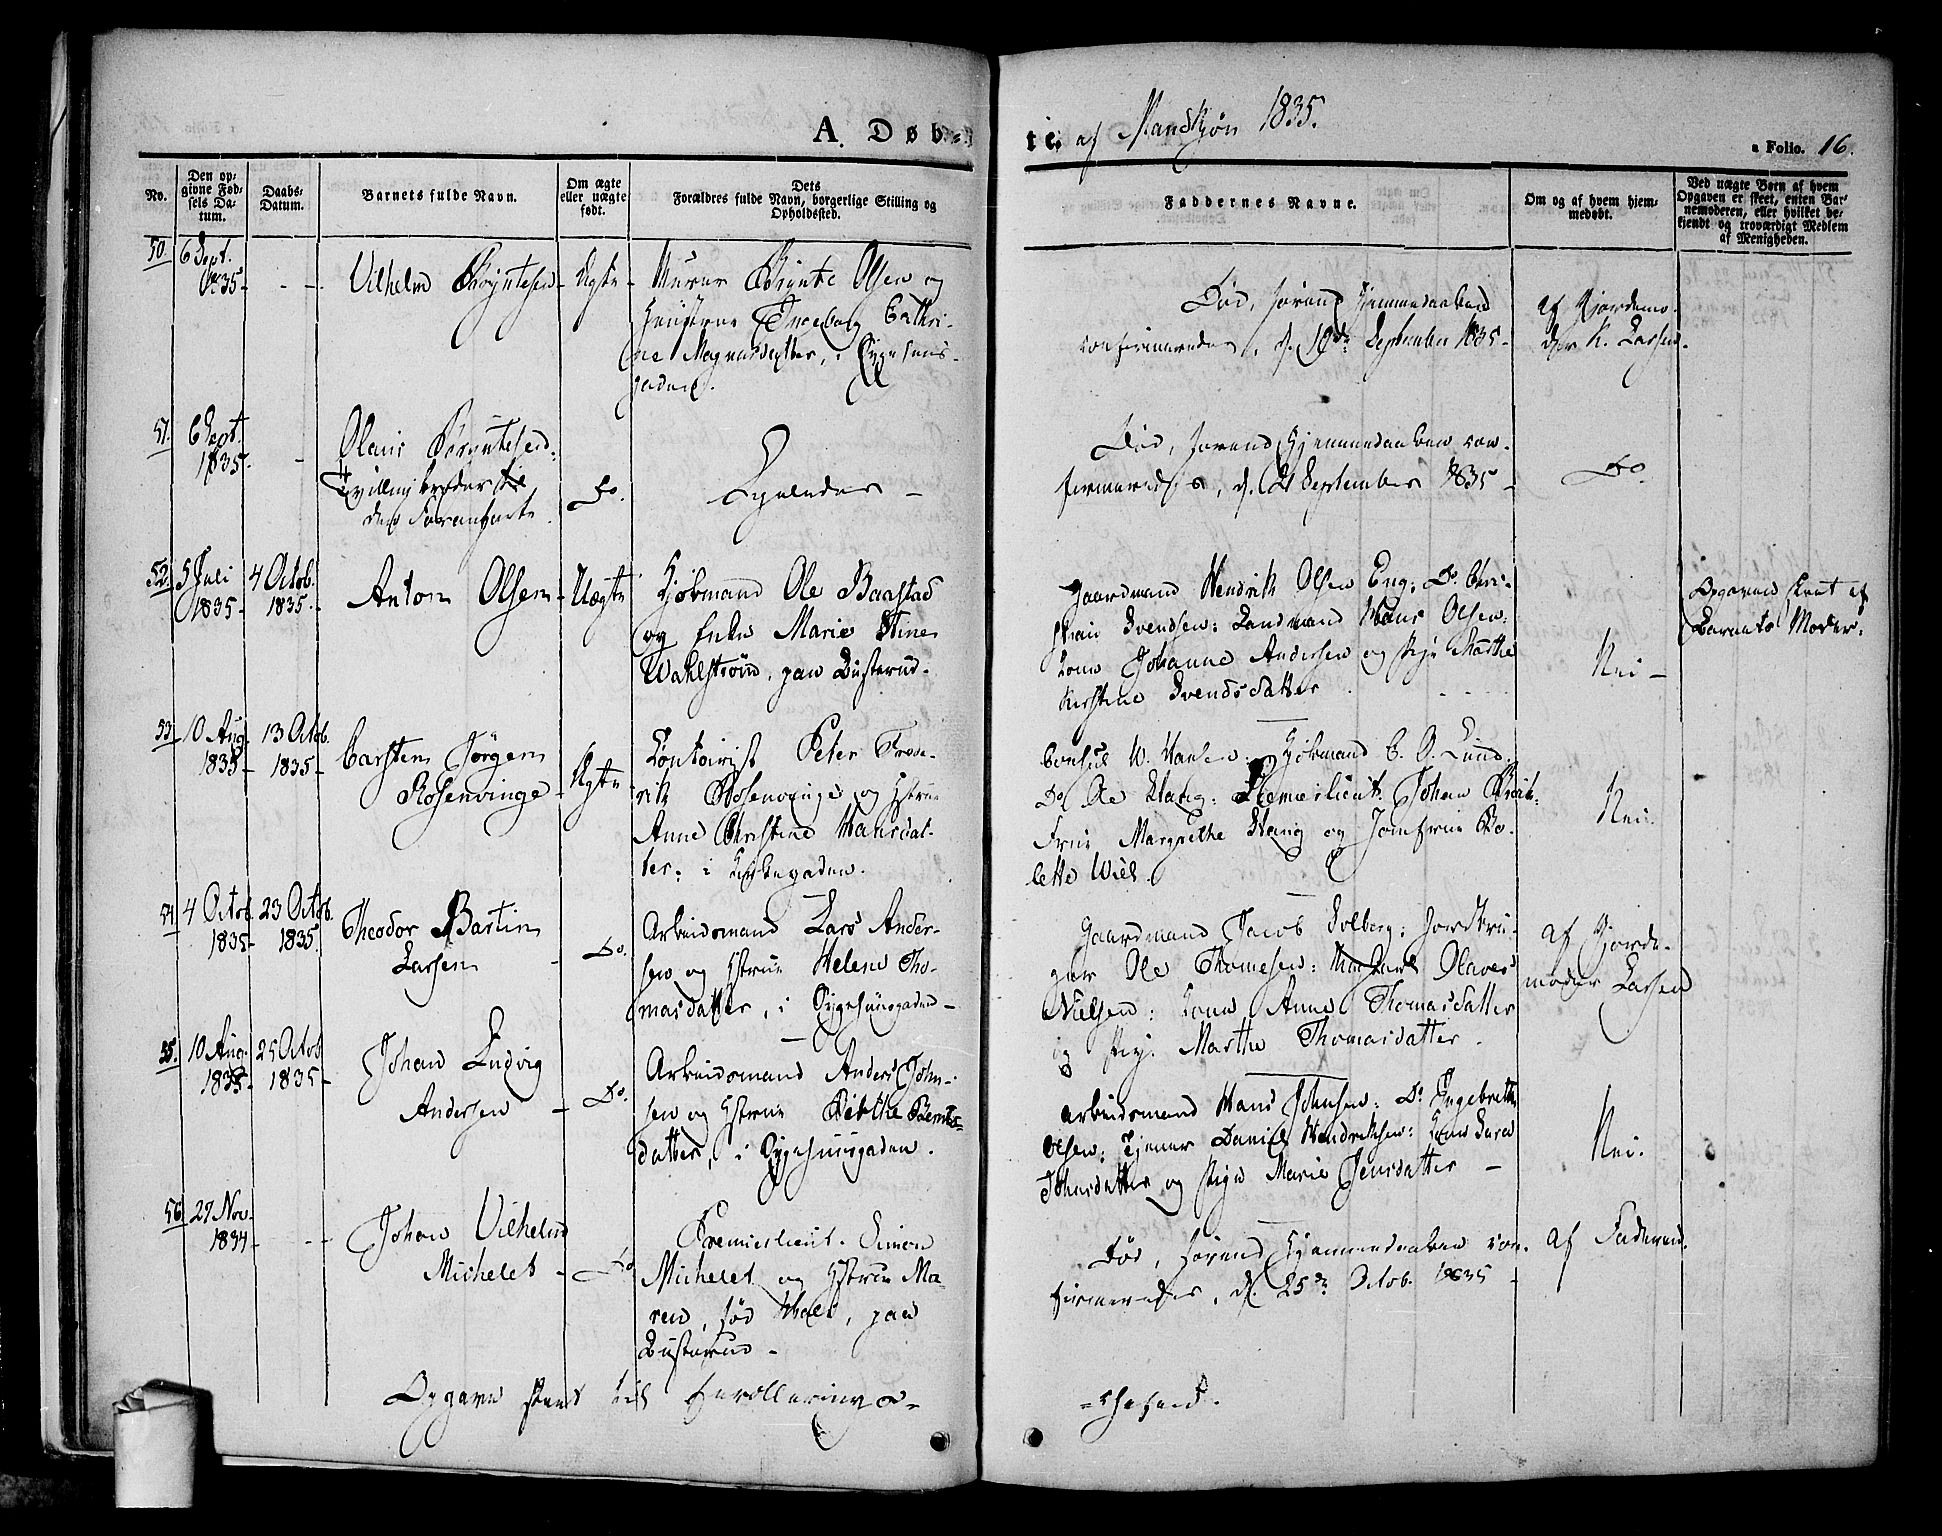 A. Døb-
te af Mandkjøn 1835.
a Folio. 16.
No.
Den op-
givne Fød-
sels Da-
tum.
Daabs-
Datum.
Barnets fulde Navn.
Om ægte
eller uægte
født.
Dets
Forældres fulde Navn, borgerlige Stilling og
Opholdssted.
Faddernes Navne.
Om og af hvem hjem-
medøbt.
Ved uægte Børn af hvem
Opgaven er skeet, enten Bar-
nemoderen, eller hvilket be-
kjendt og troværdigt Medlem
af Menigheden.
50. 6 Sept.
1835-
Vilhelm Brÿntesen - Ægte -
Murer Brÿnte Olsen og
Hustrue Ingeborg Cathri-
ne Magnusdatter, i Sygehuus-
gaden.
Død, førend Hjemmedaaben
confirmeredes, d. 18de September 1835-
af Gjordemo-
der K. Larsen.
51. 6 Sept.
1835.
Olaus Brÿntesen.
Tvillingbroder til
den Foranførte.
Do.
Ligeledes -
Død, førend Hjemmedaaben con-
firmeredes, d. 21 September 1835 -
Do.
52. 5 Juli
1835-
4 Octob.
1835.
Anton Olsen - Uægte
Kjøbmand Ole Baastad
og Enke Marie Stine
Wahlstrøm, paa Busterud.
Gaardmand Hendrik Olsen Eng: Do. Chri-
stian Svendsen: Landmand Hans Olsen:
Kone Johanne Andersen og Pige Marthe
Kirstine Svendsdatter.
Nei -
Opgaven skeet af
Barnets Moder.
53. 10 Aug.
1835-
13 Octob.
1835-
Carsten Jørgen
Rosenvinge - Ægte
Contoirist Peter Frede-
rik Rosenvinge og Hstrue
Anne Christine Hansdat-
ter: i Kirkegaden.
Consul W. Hansen: Kjøbmand C. O. Lund:
Do. Ole Stang: Premierlieut. Johan
Frue Margrethe Stang og Jomfrue Bo-
lette Wiel.
Nei.
54. 4 Octob.
1835-
23 Octob.
1835.
Theodor Bastin
Larsen -
Do.
Arbeidsmand Lars Ander-
sen og Hstrue Helene Tho-
masdatter, i Sygehuusgaden -
Gaardmand Jacob Solberg: Jordbru-
ger Ole Thomesen: Olaves
Nielsen: Kone Anne Thomasdatter
og Pige Marthe Thomasdatter.
af Gjorde-
moder Larsen
55. 10 Aug.
1835-
25 Octob
1835-
Johan Ludvig
Andersen -
Do.
Arbeidsmand Anders John-
sen og Hstrue Birthe Bernts-
datter, i Sygehuusgaden.
Arbeidsmand Hans Johnsen: Do. Ingebret
Olsen: Tjener Daniel Hendriksen: Kone Sara
Johnsdatter og Pige Marie Jensdatter -
Nei.
56. 27 Nov.
1834-
Johan Vilhelm
Michelet -
Do
Premierlieut. Simon
Michelet og Hstrue Ma-
ren, fød Wiel, paa
Busterud -
Død, førend Hjemmedaaben con-
firmeredes, d. 25de Octob. 1835 -
af Faderen.
Opgave sendt til Enrolleringe-
-chefen.